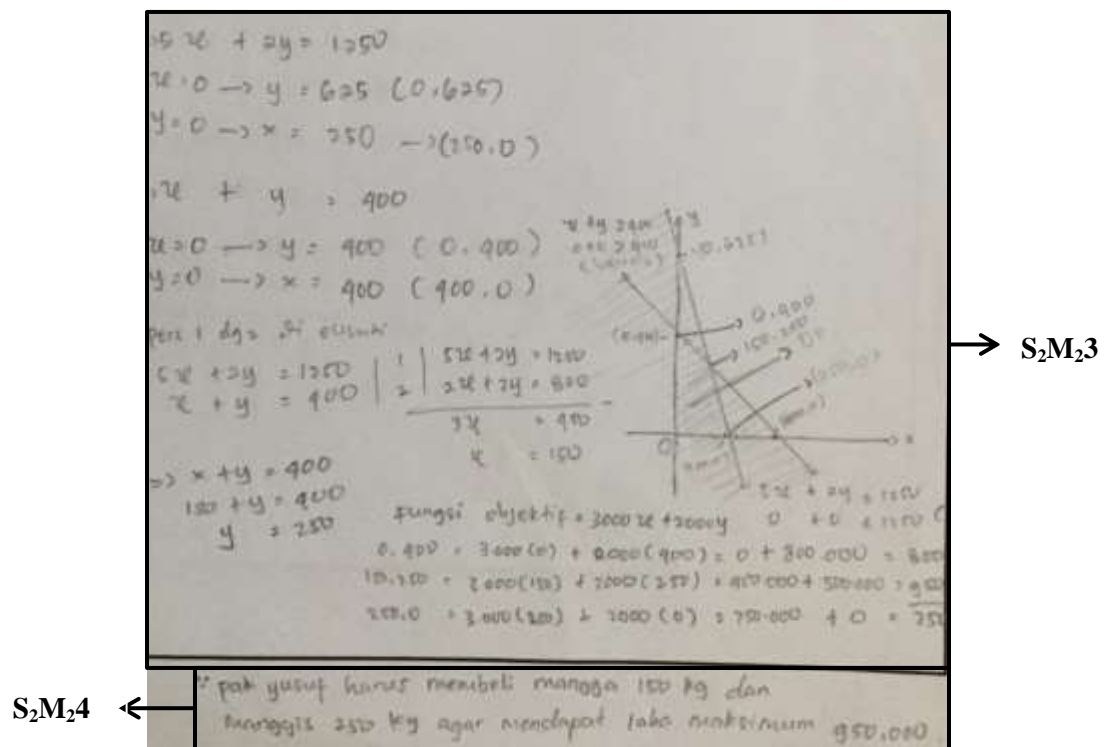 5x + 2y = 1250
x=0 → y = 625 (0,625)
y=0 → x = 250 → (250,0)
x + y = 400
x=0 → y = 400 (0,400)
y=0 → x = 400 (400,0)
Pers 1 dgn 2 di eliminasi
5x + 2y = 1250 | 1 | 5x + 2y = 1250
x + y = 400 | 2 | 2x + 2y = 800
3x = 450
x = 150
=> x + y = 400
150 + y = 400
y = 250
y
(0,625)
0,400
150,250
DP
(250,0)
(400,0)
0
x
5x + 2y = 1250
0 + 0 ≤ 1250
Fungsi objektif = 3000x + 2000y
0,400 = 3000(0) + 2000(400) = 0 + 800.000 = 800
150,250 = 3000(150) + 2000(250) = 450.000 + 500.000 = 950
250,0 = 3.000(250) + 2000(0) = 750.000 + 0 = 750
S₂M₂3
∴ pak yusuf harus membeli mangga 150 kg dan
manggis 250 kg agar mendapat laba maksimum 950.000
S₂M₂4